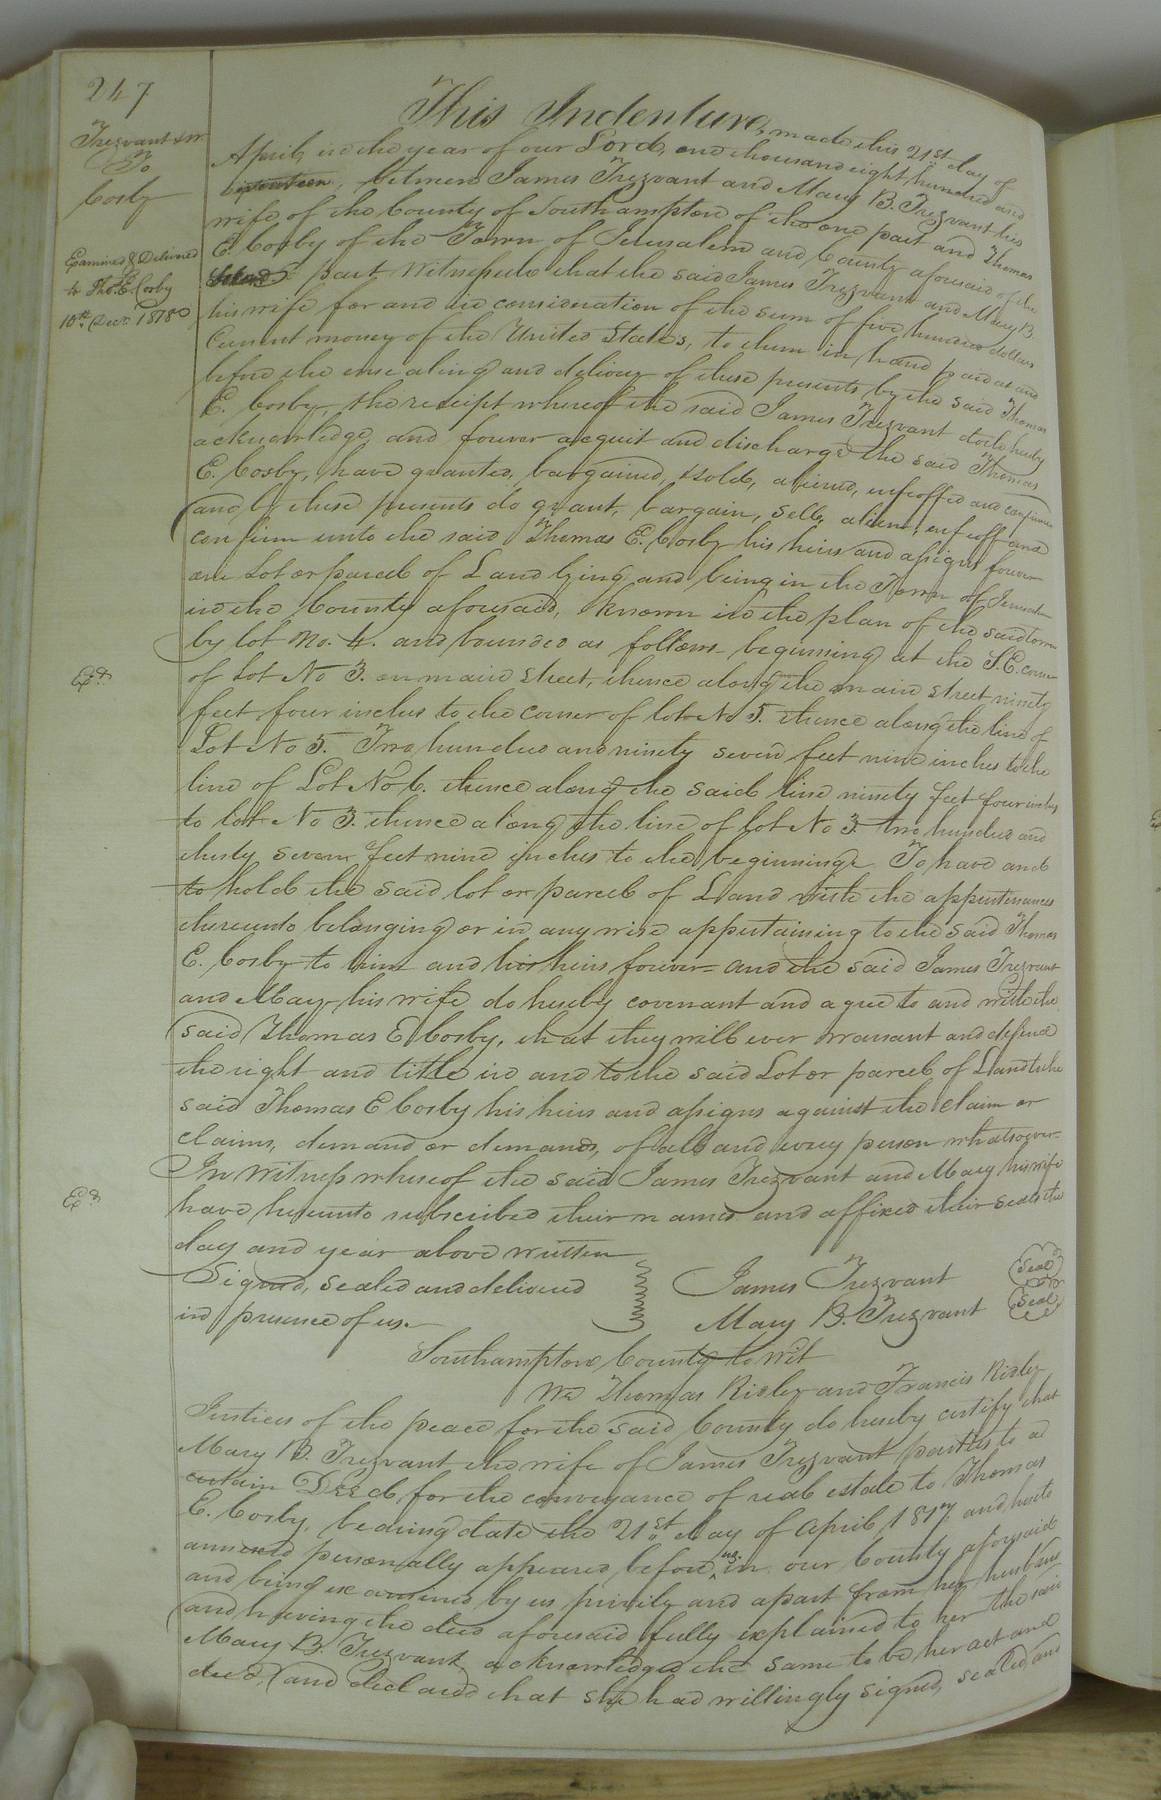 247
Trezvant & ux
To
Cosby
Examined & Delivered
to Tho. E. Cosby
10th Decr. 1878
This Indenture, made this 21st day of
April, in the year of our Lord, one thousand eight hundred and
between James Trezvant and Mary B. Trezvant his
wife of the County of Southampton of the one part and Thomas
E. Cosby of the Town of Jerusalem and County aforesaid of the
part Witnesseth that the said James Trezvant and Mary B.
his wife for and in consideration of the sum of five hundred dollars
Current money of the United States, to them in hand paid at and
before the ensealing and delivery of these presents by the said Thomas
E. Cosby, the receipt whereof the said James Trezvant doth hereby
acknowledge, and forever acquit and discharge the said Thomas
E. Cosby, have granted, bargained, sold, aliened, enfeoffed and confirmed
and by these presents do grant, bargain, sell, alien, enfeoff and
confirm unto the said Thomas E. Cosby his heirs and assigns forever
one Lot or parcel of Land lying and being in the Town of Jerusalem
in the County aforesaid, known in the plan of the said town
by lot No. 4. and bounded as follows beginning at the S.E. corner
Exd
of Lot No 3. on main street, thence along the main street ninety
feet four inches to the corner of lot No 5. thence along the line of
Lot No 5. Two hundred and ninety seven feet nine inches to the
line of Lot No 6. thence along the said line ninety feet four inches
to lot No 3. thence along the line of lot No 3. two hundred and
thirty seven feet nine inches to the beginning. To have and
to hold the said lot or parcel of Land with the appurtenances
thereunto belonging or in any wise appertaining to the said Thomas
E. Cosby to him and his heirs forever and the said James Trezvant
and Mary his wife do hereby covenant and agree to and with the
said Thomas E Cosby, that they will ever warrant and defend
the right and title in and to the said Lot or parcel of Land to the
said Thomas E Cosby his heirs and assigns against the claim or
claims, demand or demands, of all and every person whatsoever
In Witness whereof the said James Trezvant and Mary his wife
Exd
have hereunto subscribed their names and affixed their seals the
day and year above written
Signed, sealed and delivered
in presence of us.
James Trezvant Seal
Mary B. Trezvant Seal
Southampton County to wit
We Thomas Ridley and Francis Ridley
Justices of the peace for the said County do hereby certify that
Mary B. Trezvant the wife of James Trezvant parties to a
certain Deed for the conveyance of real estate to Thomas
E. Cosby, bearing date the 21st day of April 1817 and hereto
annexed personally appeared before us in our County aforesaid
and being examined by us privily and apart from her husband
and having the deed aforesaid fully explained to her the said
Mary B. Trezvant acknowledged the same to be her act and
deed, and declared that she had willingly signed, sealed, and